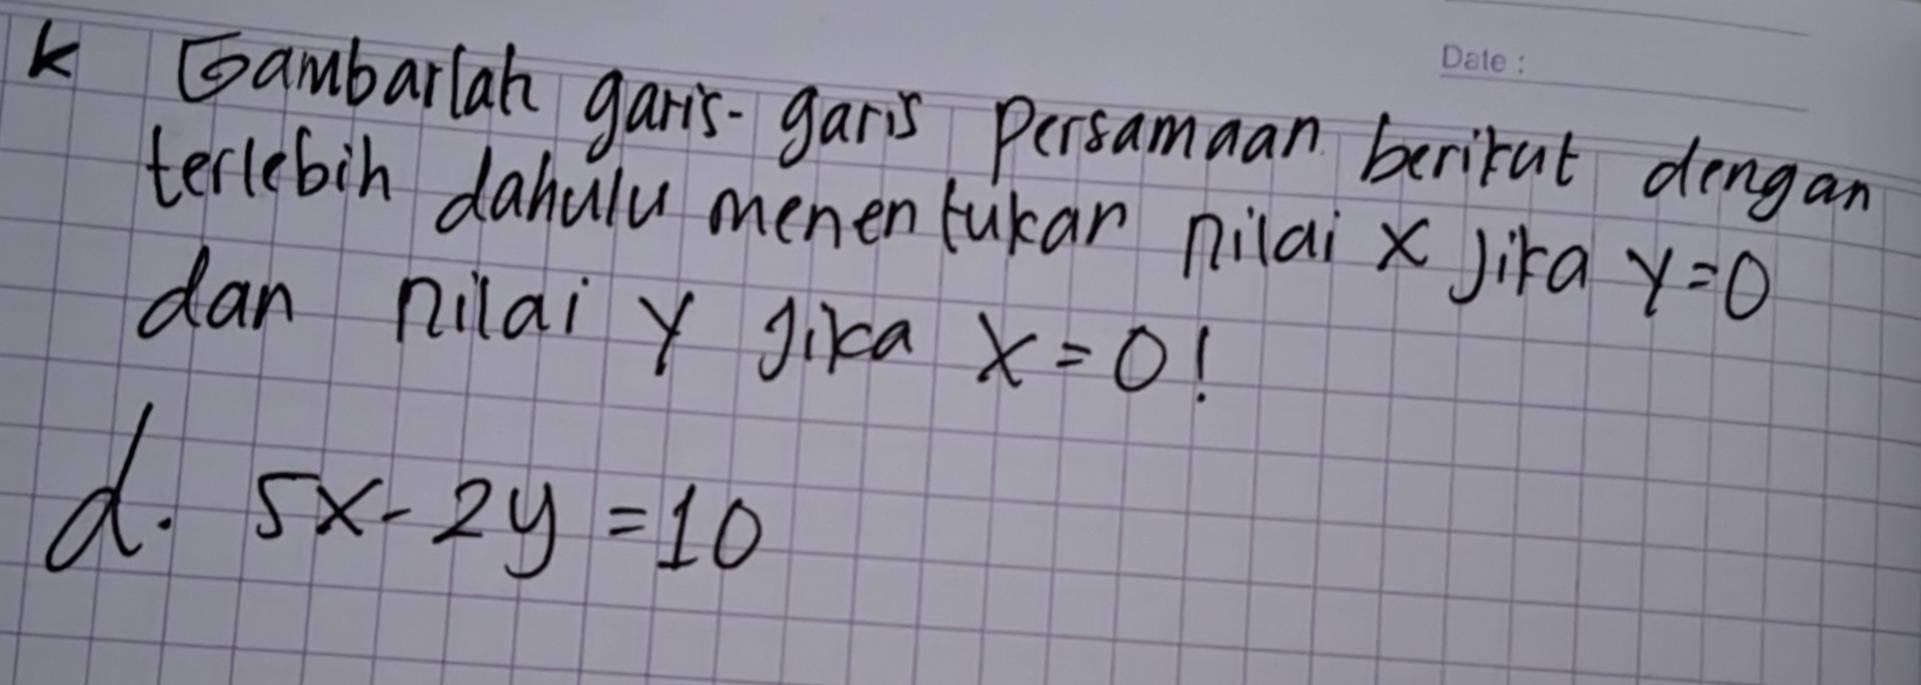 Date :
k Gambarlah garis-garis persamaan berikut dengan
terlebih dahulu menentukan nilai x jika y=0
dan nilai y jika x=0!
d. 5x-2y=10